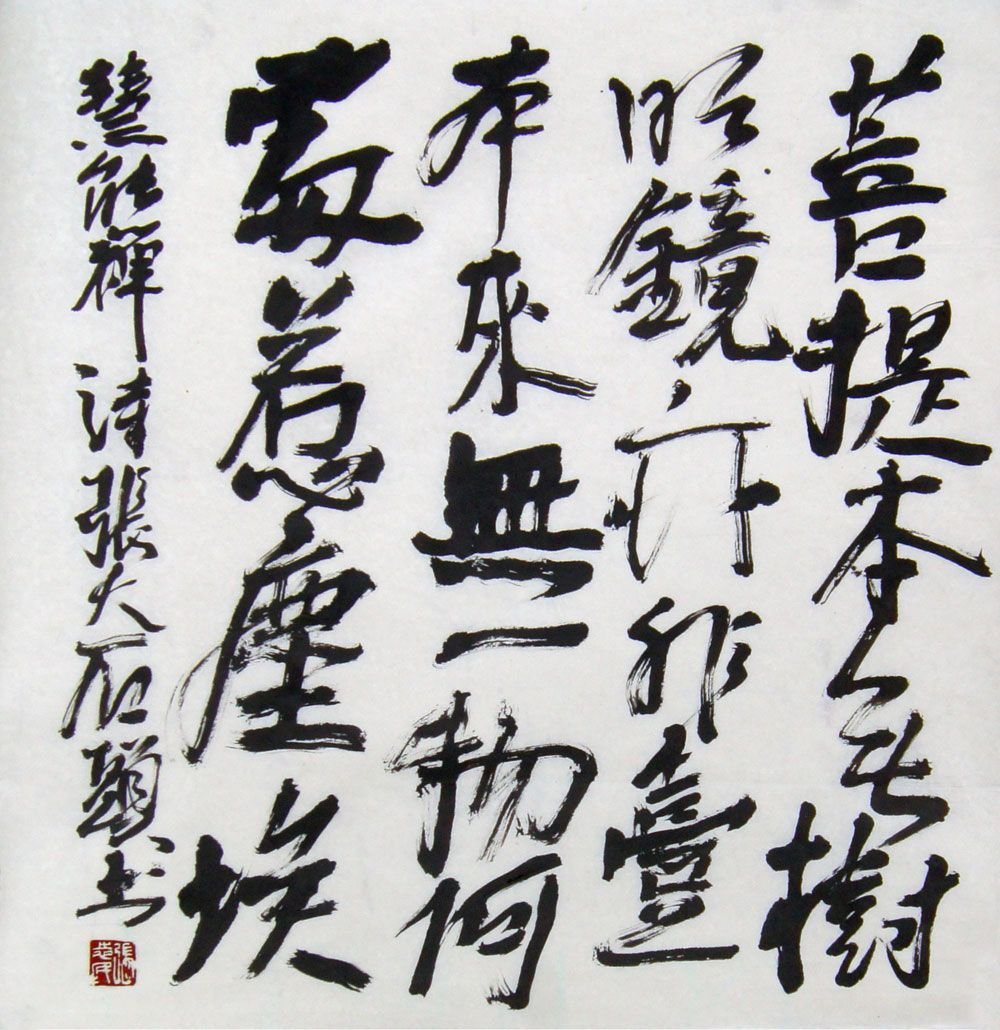 菩提本無樹
明鏡亦非臺
本來無一物何
處惹塵埃
慧能禪詩張大石書